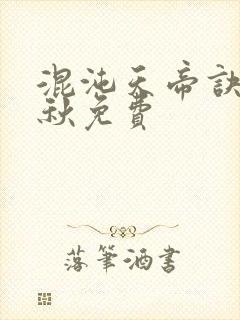 混沌天帝訣
秋免費
落筆酒書